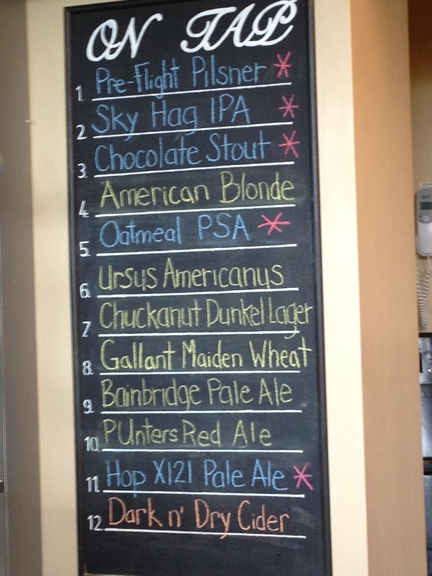 ON TAP
1. Pre-Flight Pilsner *
2. Sky Hag IPA *
3. Chocolate Stout *
4. American Blonde
5. Oatmeal PSA *
6. Ursus Americanus
7. Chuckanut Dunkel Lager
8. Gallant Maiden Wheat
9. Bainbridge Pale Ale
10. PUnters Red Ale
11. Hop X121 Pale Ale *
12. Dark n' Dry Cider